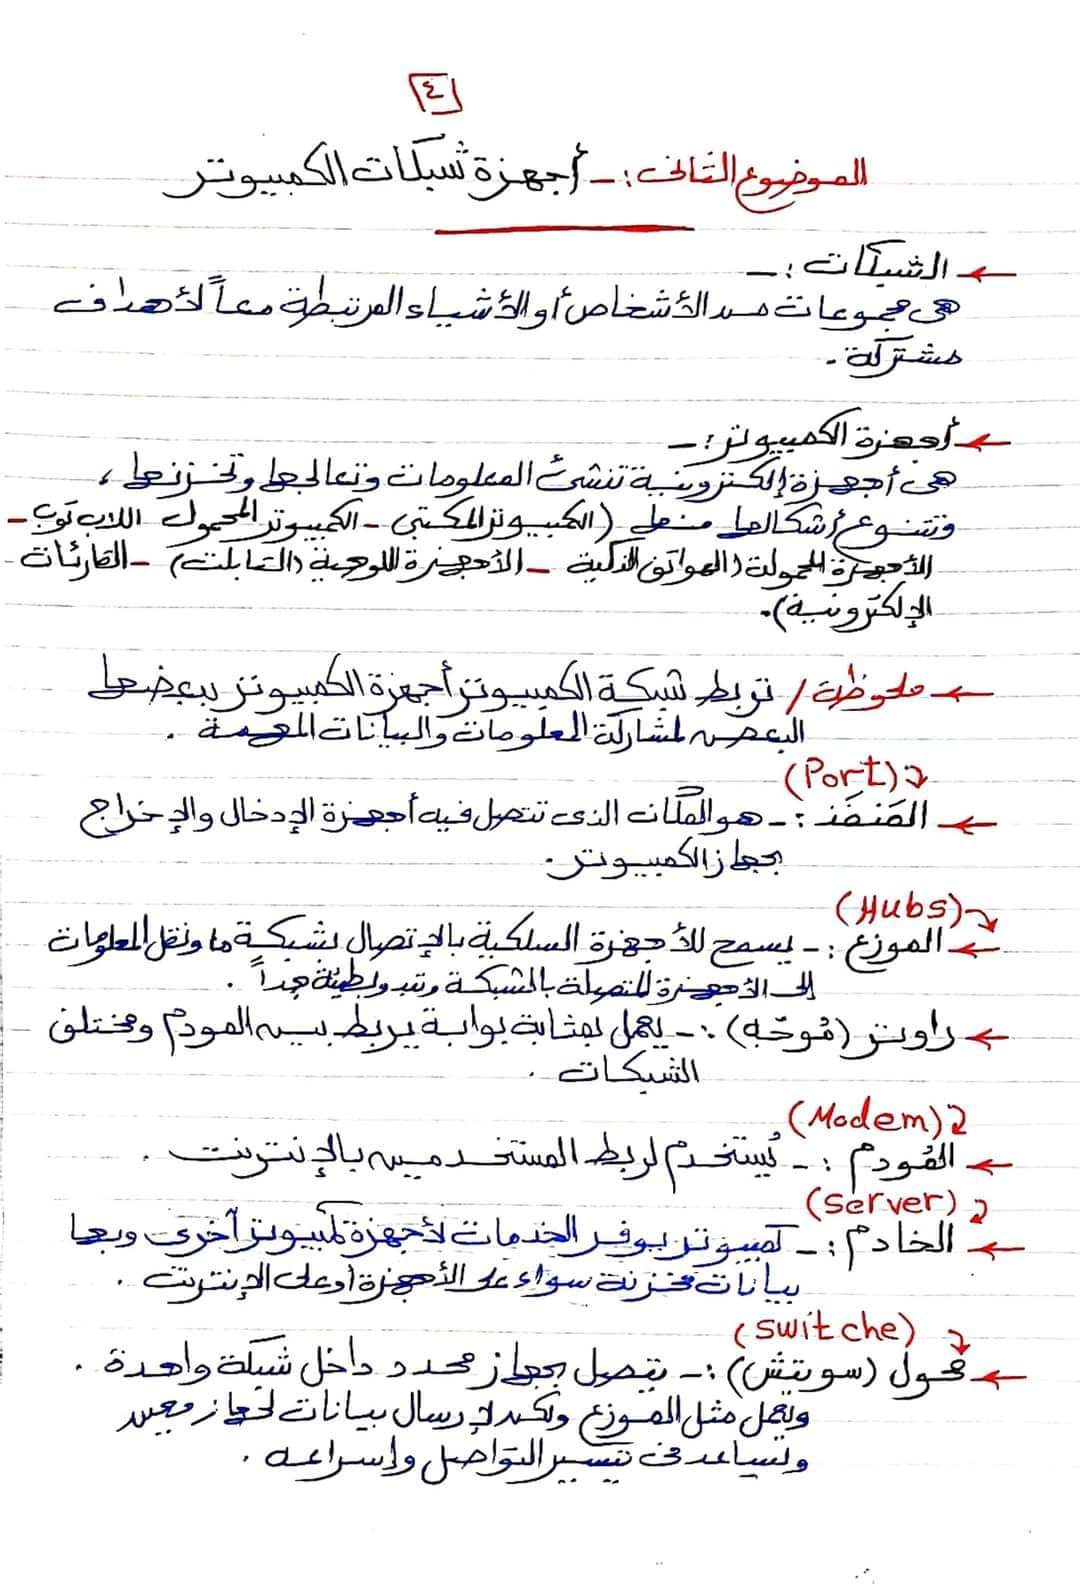 ٤
الموضوع الثانى :- أجهزة شبكات الكمبيوتر
← الشبكات :-
هى مجموعات من الأشخاص أو الأشياء المرتبطة معاً لأهداف
مشتركة .
← أجهزة الكمبيوتر :-
هى أجهزة إلكترونية تنشئ المعلومات وتعالجها وتخزنها ،
وتتنوع أشكالها منها ( الكمبيوتر المكتبى - الكمبيوتر المحمول اللاب توب -
الأجهزة المحمولة ( الهواتف الذكية - الأجهزة اللوحية ( التابلت ) - القارئات
الإلكترونية ) .
← ملحوظة / تربط شبكة الكمبيوتر أجهزة الكمبيوتر ببعضها
البعض لمشاركة المعلومات والبيانات المهمة .
(Port)
← المَنفَذ :- هو المكان الذى تتصل فيه أجهزة الإدخال والإخراج
بجهاز الكمبيوتر .
(Hubs)
← الموزع :- يسمح للأجهزة السلكية بالإتصال بشبكة ما ونقل المعلومات
إلى الأجهزة المتصلة بالشبكة وتبدو بطيئة جداً .
← راوتر ( مُوجّه ) :- يعمل بمثابة بوابة يربط بين المودم ومختلف
الشبكات .
(Modem)
← المُودم :- يُستخدم لربط المستخدمين بالإنترنت .
(Server)
← الخادم :- كمبيوتر يوفر الخدمات لأجهزة كمبيوتر آخرى وبها
بيانات مخزنة سواء على الأجهزة أو على الإنترنت .
(switche)
← محول ( سويتش ) :- يتصل بجهاز محدد داخل شبكة واحدة .
ويعمل مثل الموزع ولكن لإرسال بيانات لجهاز معين
ويساعد فى تيسير التواصل وإسراعه .